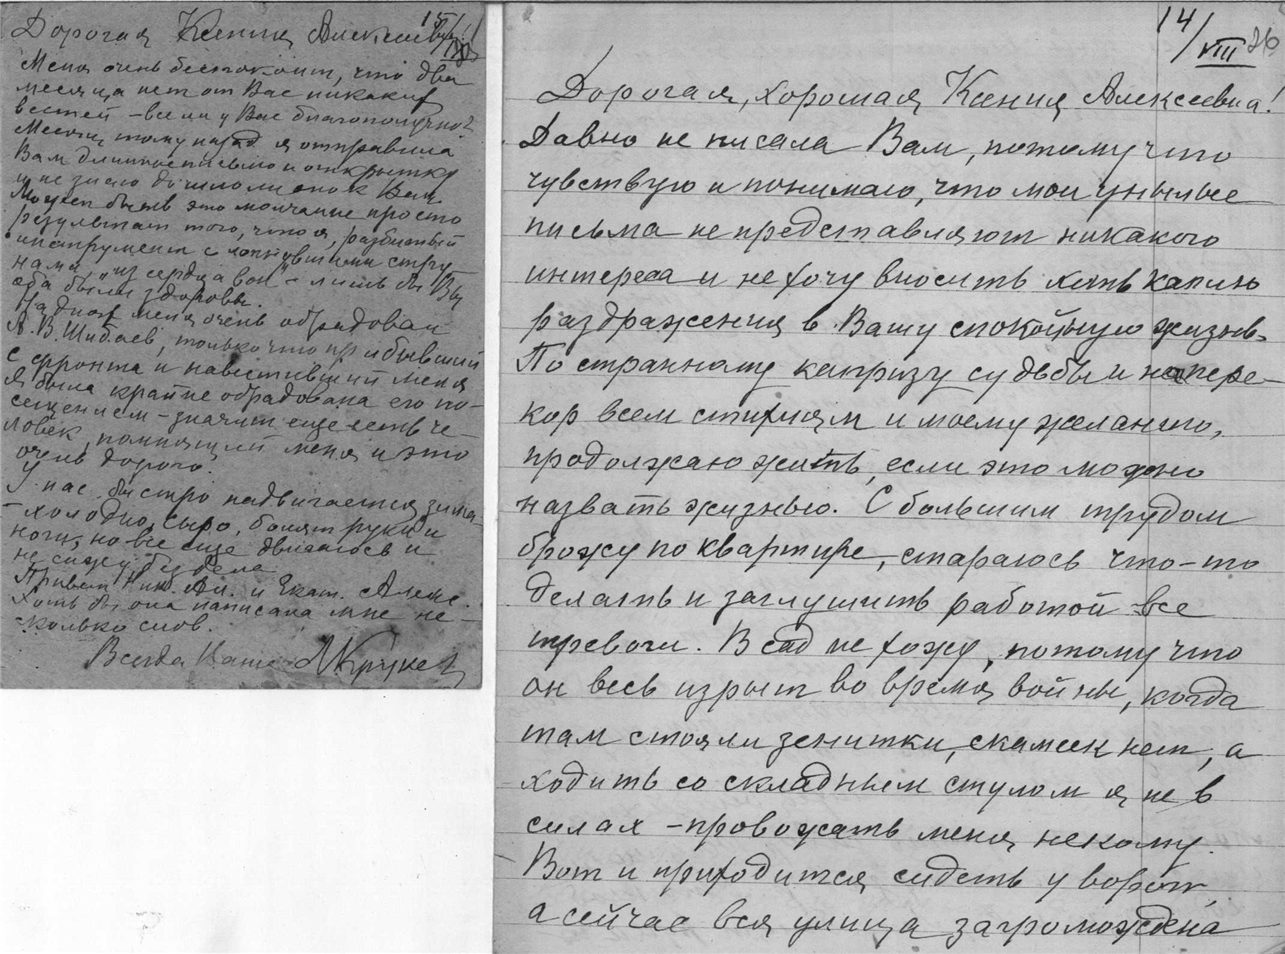 15/
Дорогая Ксения Алексеевна!
Меня очень беспокоит, что два
месяца нет от Вас никаких
вестей – все ли у Вас благополучно?
Месяц тому назад я отправила
Вам длинное письмо и открытку
и не знаю дошло ли оно к Вам.
Может быть это молчание просто
результат того, что я, разбитый
инструмент с лопнувшими стру-
нами, "из сердца вон" – лишь бы Вы
оба были здоровы.
На днях меня очень обрадовал
А. В. Шибаев, только что прибывший
с фронта и навестивший меня
Я была крайне обрадована его по-
сещением – значит еще есть че-
ловек, помнящий меня и это
очень дорого.
У нас быстро надвигается зима
– холодно, сыро, болят руки и
ноги, но все еще двигаюсь и
не сижу без дела
Привет Ник. Ал. и Екат. Алекс.
Хоть бы она написала мне не-
сколько слов.
Всегда Ваша
14/VIII 26
Дорогая, хорошая Ксения Алексеевна!
Давно не писала Вам, потому что
чувствую и понимаю, что мои унылые
письма не представляют никакого
интереса и не хочу вносить хоть каплю
раздражения в Вашу спокойную жизнь.
По странному капризу судьбы и напере-
кор всем стихиям и моему желанию,
продолжаю жить, если это можно
назвать жизнью. С большим трудом
брожу по квартире, стараюсь что-то
делать и заглушить работой все
тревоги. В сад не хожу, потому что
он весь изрыт во время войны, когда
там стояли зенитки, скамеек нет, а
ходить со складным стулом я не в
силах – провожать меня некому.
Вот и приходится сидеть у ворот,
а сейчас вся улица загромождена